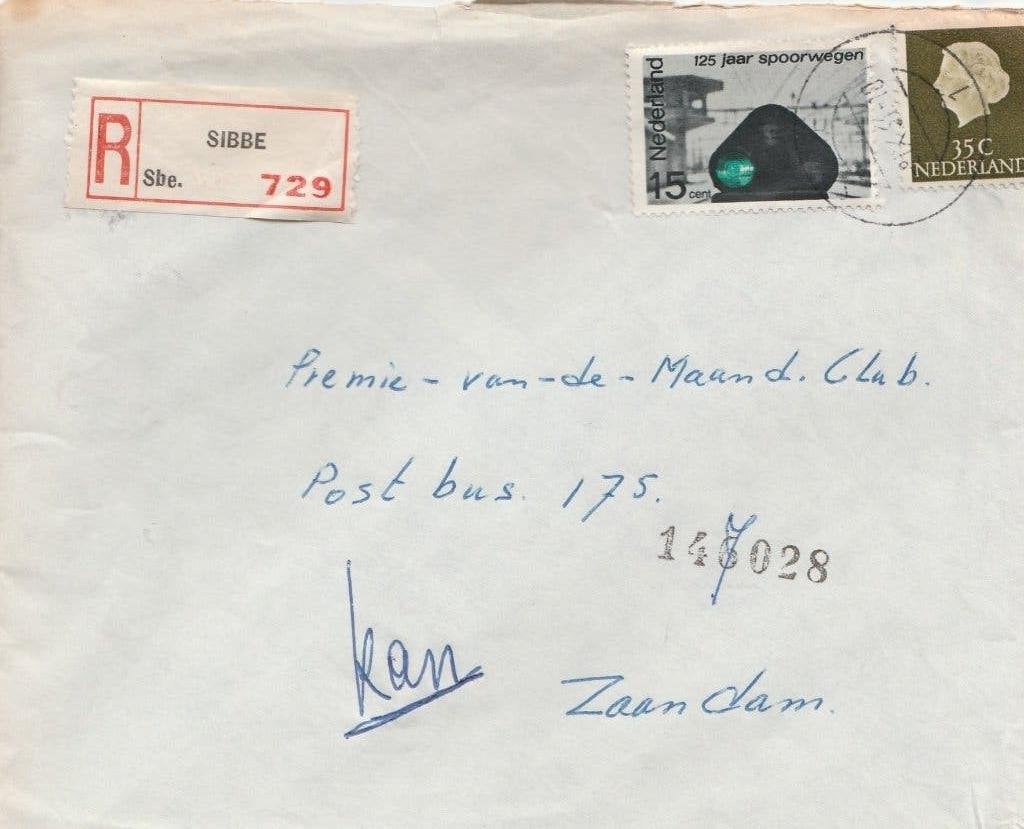 R SIBBE
Sbe. 729
125 jaar spoorwegen
Nederland
15 cent
35 C
NEDERLAND
Premie-van-de-Maand. Club.
Post bus. 175.
147028
kan
Zaandam.